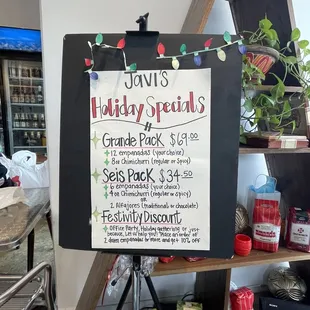 JAVI'S
Holiday Specials
Grande Pack $69.00
+ 12 empanadas (your choice)
+ 8oz Chimichurri (regular or spicy)
Seis Pack $34.50
6 empanadas (your choice)
+ 4oz Chimichurri (regular or spicy)
OR
2 Alfajores (traditional or chocolate)
Festivity Discount
Office Party, Holiday gathering or just
because. Let us help you! Place an order of
2 dozen empanadas or more and get 10% OFF